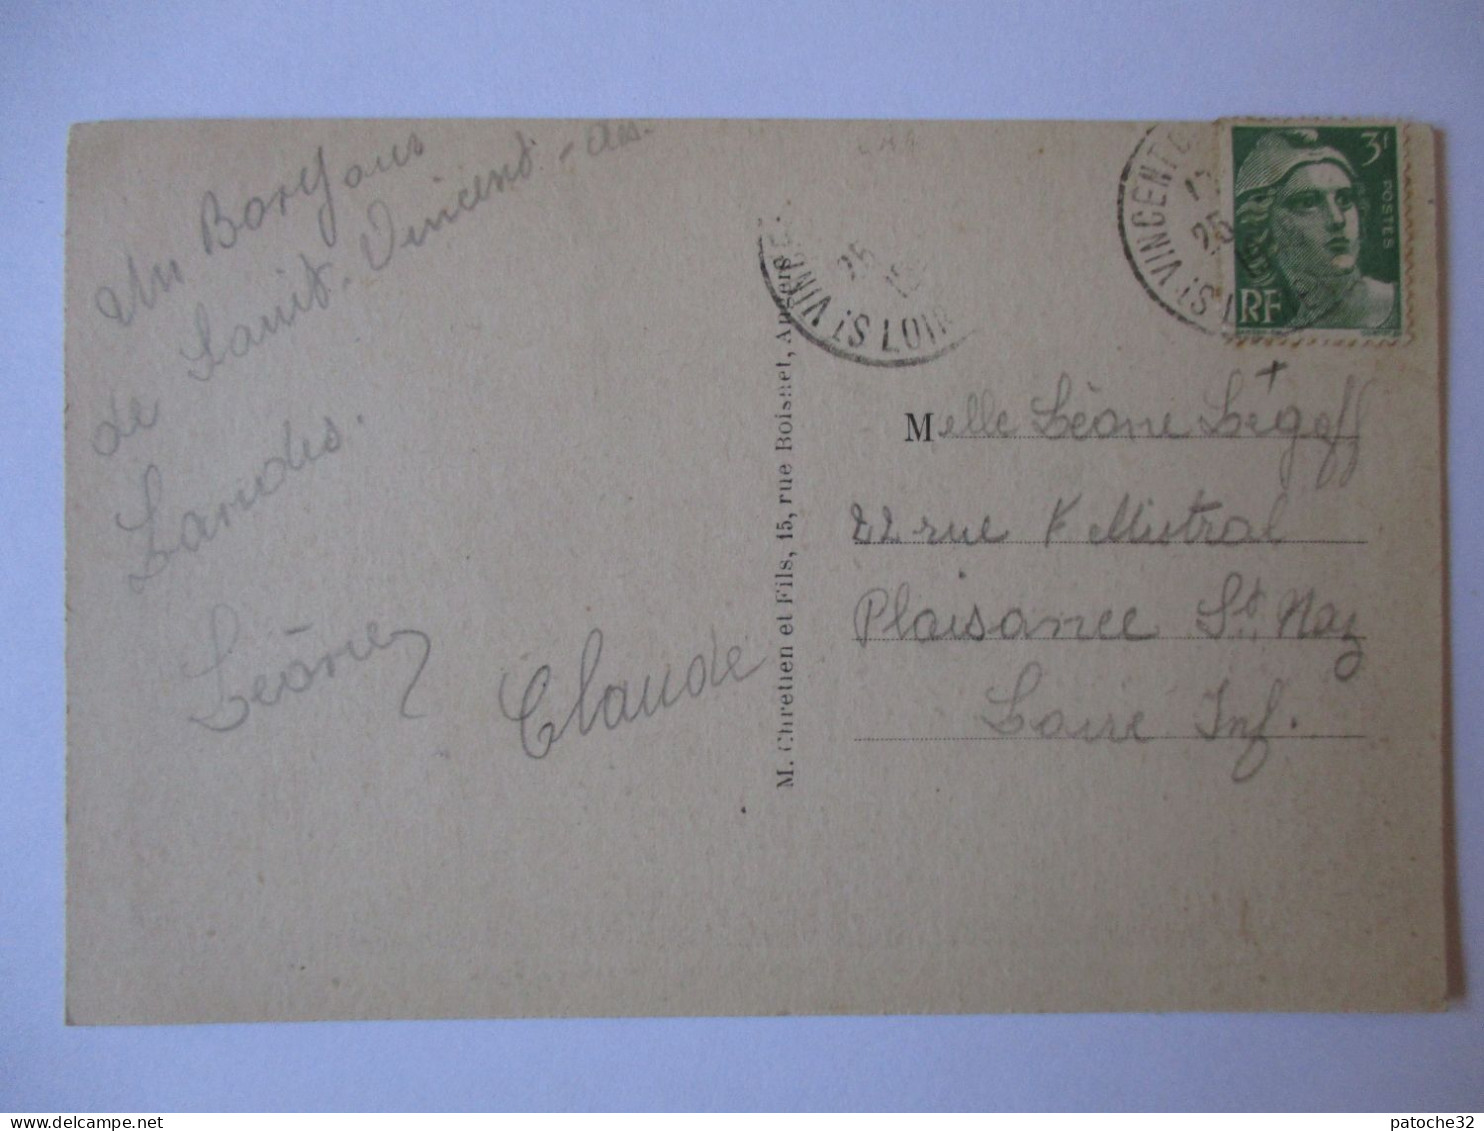 Un Bonjour
de Saint-Vincent-des.
Landes.
Léone
Claude
M. Chretien et Fils, 15, rue Boisnet, Angers
ST VINCE
25
LOIR
ST VINCENT
25
3F
POSTES
RF
Melle Léone Legoff
22 rue F Mistral
Plaisance St Naz
Loire Inf.
patoche32